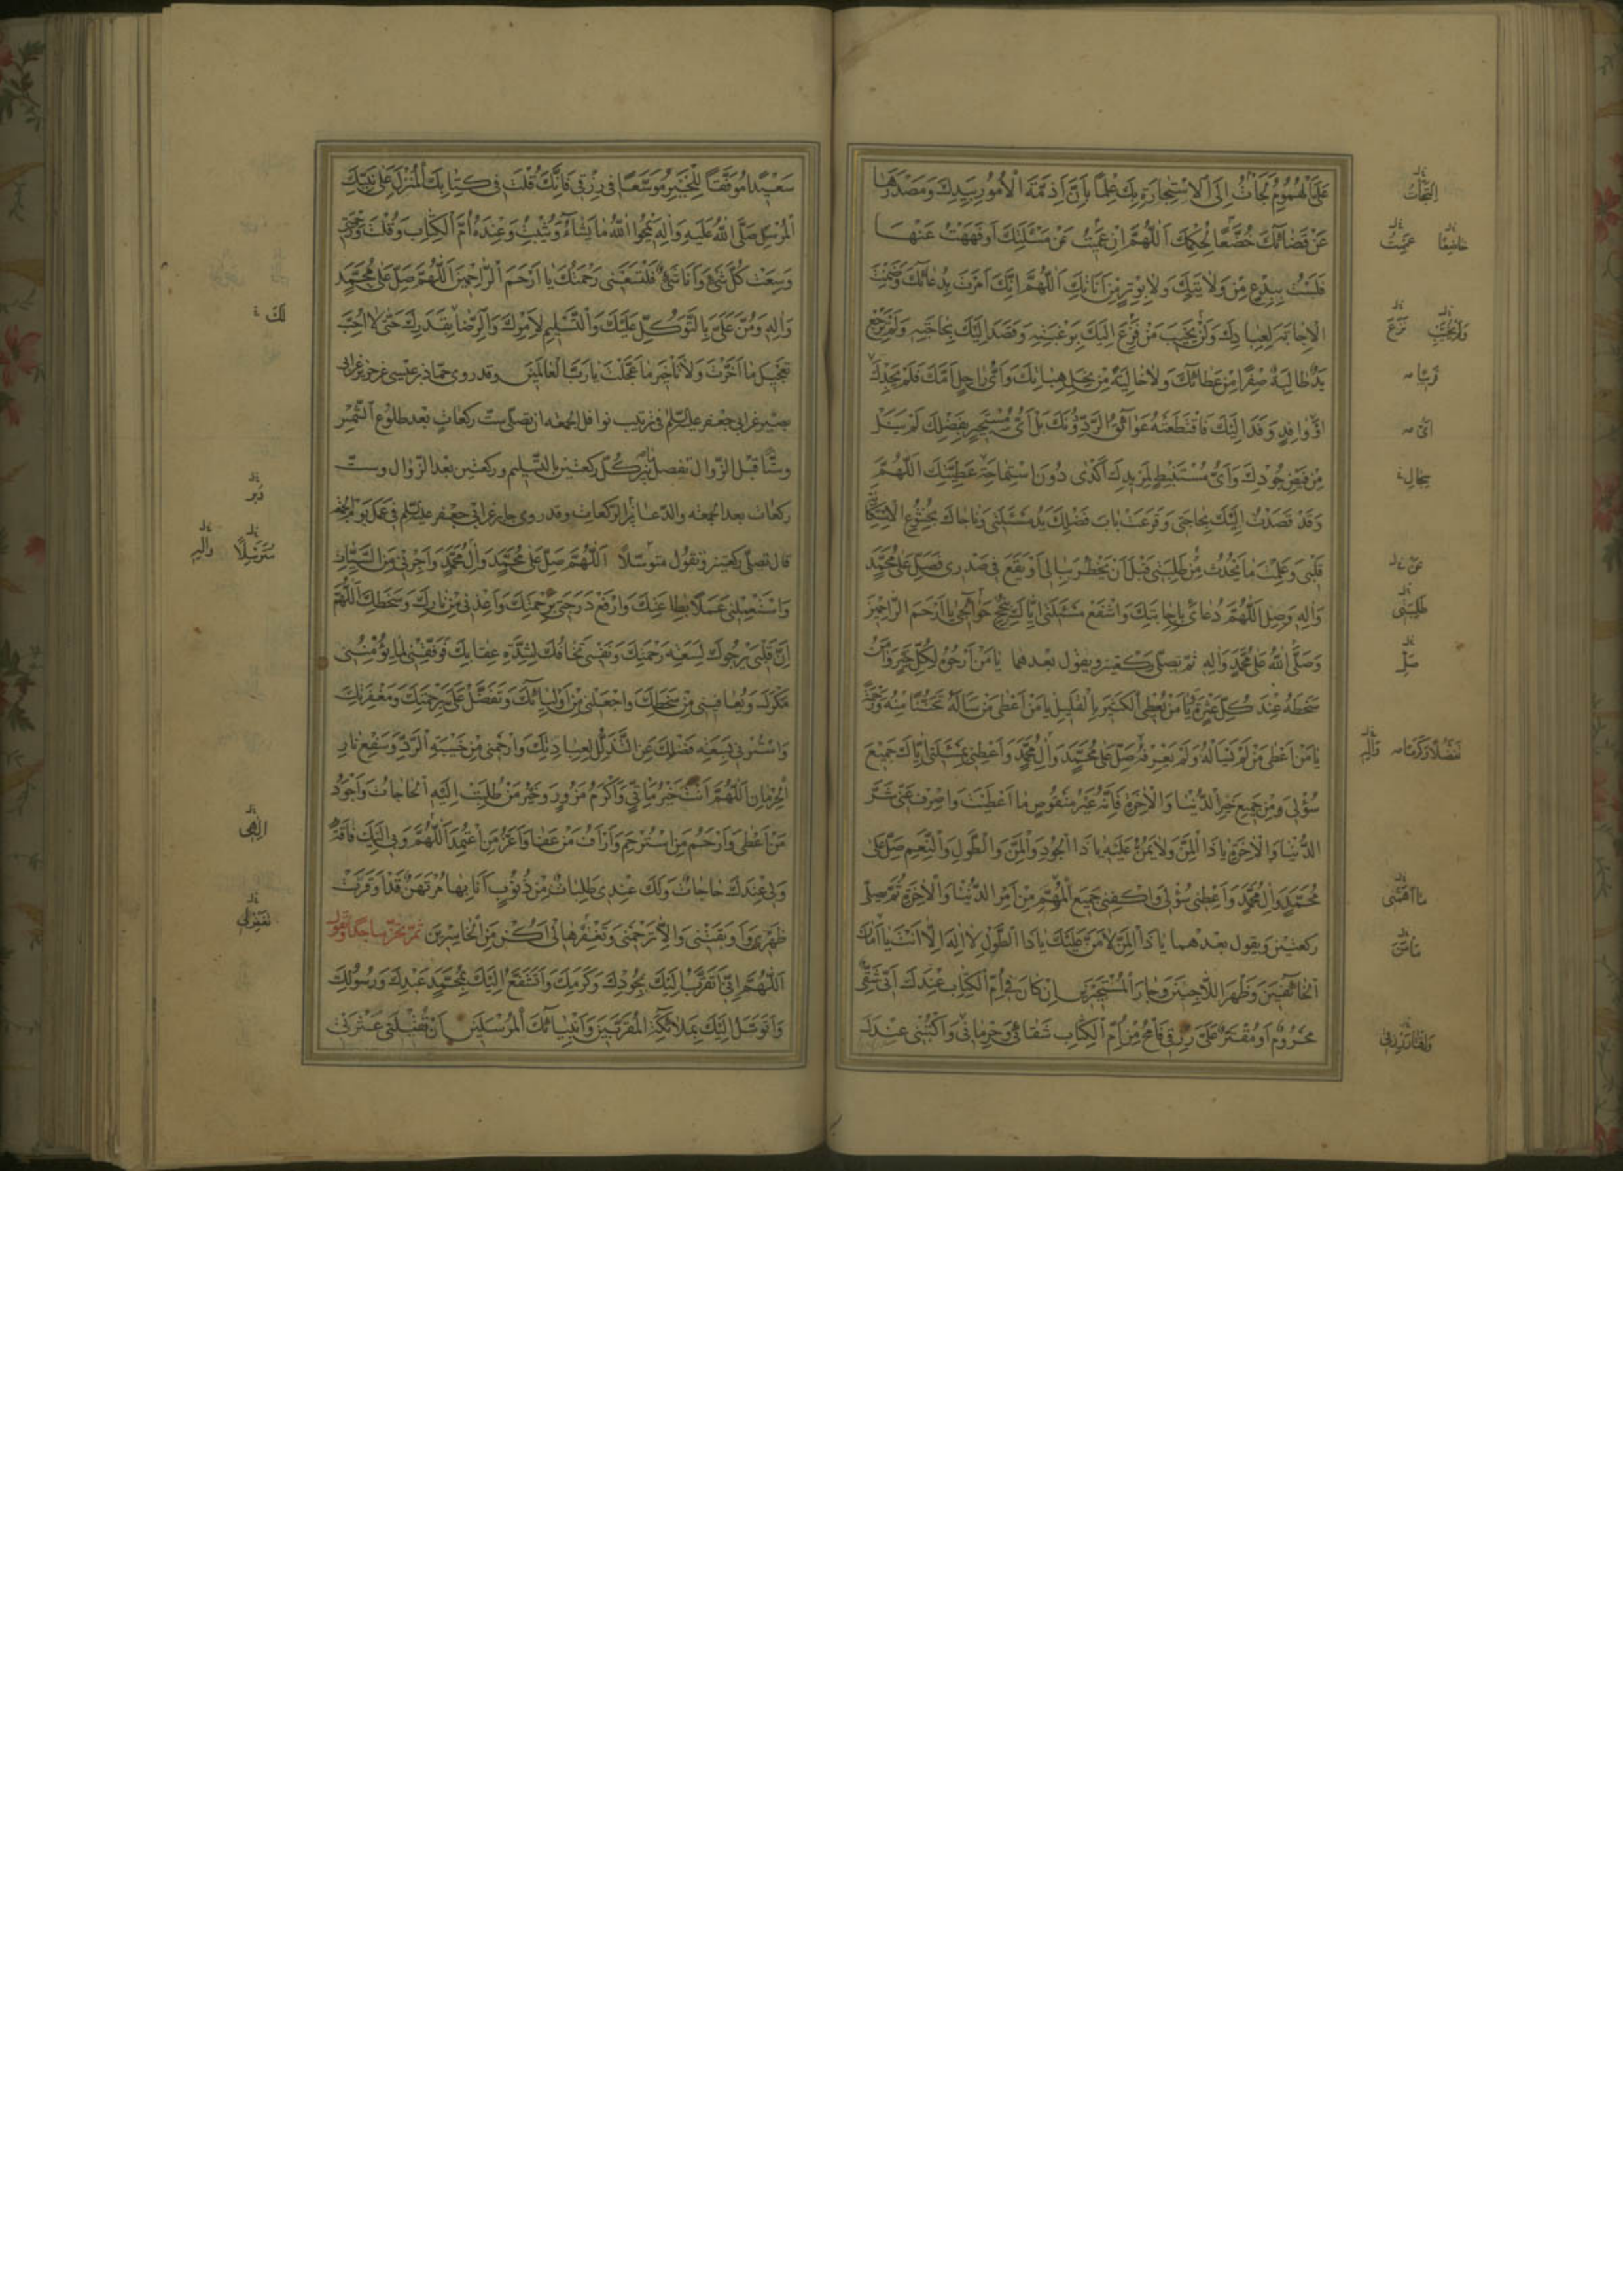 عَلَيَّ الْهُمُومُ لَجَأْتُ إِلَى الْاِسْتِجَارَةِ بِكَ عِلْمًا بِأَنَّ أَزِمَّةَ الْأُمُورِ بِيَدِكَ وَمَصْدَرُهَا
عَنْ قَضَائِكَ خُضَّعًا لِحُكْمِكَ اَللّٰهُمَّ إِنْ عَمِيتُ عَنْ مَسْئَلَتِكَ أَوْ فَهِهْتُ عَنْهَا
فَلَسْتُ بِبِدْعٍ مِنْ وَلَايَتِكَ وَلَا بِوَتْرٍ مِنْ أَنَاتِكَ اَللّٰهُمَّ إِنَّكَ أَمَرْتَ بِدُعَائِكَ وَضَمِنْتَ
الْإِجَابَةَ لِعِبَادِكَ وَلَنْ يَخِيبَ مَنْ فَزِعَ إِلَيْكَ بِرَغْبَتِهِ وَقَصَدَ إِلَيْكَ بِحَاجَتِهِ وَلَمْ تَرْجِعْ
يَدٌ طَالِبَةٌ صِفْرًا مِنْ عَطَائِكَ وَلَا خَالِيَةً مِنْ نِحَلِ هِبَاتِكَ وَأَيُّ رَاحِلٍ أَمَّكَ فَلَمْ يَجِدْكَ
أَوْ وَافِدٍ وَفَدَ إِلَيْكَ فَاقْتَطَعَتْهُ عَوَائِقُ الرَّدِّ دُونَكَ بَلْ أَيُّ مُسْتَجِيرٍ بِفَضْلِكَ لَمْ يَنَلْ
مِنْ فَيْضِ جُودِكَ وَأَيُّ مُسْتَنْبِطٍ لِمَزِيدِكَ أَكْدَى دُونَ اسْتِمَاحَةِ عَطِيَّتِكَ اَللّٰهُمَّ
وَقَدْ قَصَدْتُ إِلَيْكَ بِحَاجَتِي وَقَرَعَتْ بَابَ فَضْلِكَ يَدُ مَسْئَلَتِي وَنَاجَاكَ بِخُشُوعِ الْاِسْتِكَانَةِ
قَلْبِي وَعَلِمْتَ مَا يَحْدُثُ مِنْ طَلِبَتِي قَبْلَ أَنْ يَخْطُرَ بِبَالِي أَوْ يَقَعَ فِي صَدْرِي فَصَلِّ عَلَى مُحَمَّدٍ
وَآلِهِ وَصِلِ اللّٰهُمَّ دُعَائِي بِإِجَابَتِكَ وَاشْفَعْ مَسْئَلَتِي إِيَّاكَ بِنُجْحِ حَوَائِجِي يَا أَرْحَمَ الرَّاحِمِينَ
وَصَلَّى اللّٰهُ عَلَى مُحَمَّدٍ وَآلِهِ ثم تصلّي ركعتين ويقول بعدهما يَا مَنْ أَرْجُوهُ لِكُلِّ خَيْرٍ وَآمَنُ
سَخَطَهُ عِنْدَ كُلِّ عَثْرَةٍ يَا مَنْ يُعْطِي الْكَثِيرَ بِالْقَلِيلِ يَا مَنْ أَعْطَى مَنْ سَأَلَهُ تَحَنُّنًا مِنْهُ وَرَحْمَةً
يَا مَنْ أَعْطَى مَنْ لَمْ يَسْأَلْهُ وَلَمْ يَعْرِفْهُ صَلِّ عَلَى مُحَمَّدٍ وَآلِ مُحَمَّدٍ وَأَعْطِنِي بِمَسْئَلَتِي إِيَّاكَ جَمِيعَ
سُؤْلِي وَمِنْ جَمِيعِ خَيْرِ الدُّنْيَا وَالْآخِرَةِ فَإِنَّهُ غَيْرُ مَنْقُوصٍ مَا أَعْطَيْتَ وَاصْرِفْ عَنِّي شَرَّ
الدُّنْيَا وَالْآخِرَةِ يَا ذَا الْمَنِّ وَلَا يُمَنُّ عَلَيْهِ يَا ذَا الْجُودِ وَالْمَنِّ وَالطَّوْلِ وَالنَّعِيمِ صَلِّ عَلَى
مُحَمَّدٍ وَآلِ مُحَمَّدٍ وَأَعْطِنِي سُؤْلِي وَاكْفِنِي جَمِيعَ الْمُهِمِّ مِنْ أَمْرِ الدُّنْيَا وَالْآخِرَةِ ثُمَّ صلّ
ركعتين ويقول بعدهما يَا ذَا الْمَنِّ لَا مَنَّ عَلَيْكَ يَا ذَا الطَّوْلِ لَا إِلٰهَ إِلَّا أَنْتَ يَا أَمَانَ
الْخَائِفِينَ وَظَهْرَ اللَّاجِينَ وَجَارَ الْمُسْتَجِيرِينَ إِنْ كَانَ فِي أُمِّ الْكِتَابِ عِنْدَكَ أَنِّي شَقِيٌّ
مَحْرُومٌ أَوْ مُقْتَرٌ عَلَيَّ رِزْقِي فَامْحُ مِنْ أُمِّ الْكِتَابِ شَقَائِي وَحِرْمَانِي وَاكْتُبْنِي عِنْدَكَ
خاضِعًا
طَلِبَتِي
صَلِّ
سَعِيدًا مُوَفَّقًا لِلْخَيْرِ مُوَسَّعًا فِي رِزْقِي فَإِنَّكَ قُلْتَ فِي كِتَابِكَ الْمُنْزَلِ عَلَى نَبِيِّكَ
الْمُرْسَلِ صَلَّى اللّٰهُ عَلَيْهِ وَآلِهِ يَمْحُوا اللّٰهُ مَا يَشَاءُ وَيُثْبِتُ وَعِنْدَهُ أُمُّ الْكِتَابِ وَقُلْتَ وَرَحْمَتِي
وَسِعَتْ كُلَّ شَيْءٍ وَأَنَا شَيْءٌ فَلْتَسَعْنِي رَحْمَتُكَ يَا أَرْحَمَ الرَّاحِمِينَ اَللّٰهُمَّ صَلِّ عَلَى مُحَمَّدٍ
وَآلِهِ وَمُنَّ عَلَيَّ بِالتَّوَكُّلِ عَلَيْكَ وَالتَّسْلِيمِ لِأَمْرِكَ وَالرِّضَا بِقَدَرِكَ حَتَّى لَا أُحِبَّ
تَعْجِيلَ مَا أَخَّرْتَ وَلَا تَأْخِيرَ مَا عَجَّلْتَ يَا رَبَّ الْعَالَمِينَ وقد روى حمّاد بن عيسى عن حريز عن أبي
بصير عن أبي جعفر عليه السّلم في ترتيب نوافل الجمعة ان تصلّي ستّ ركعات بعد طلوع الشّمس
وستًّا قبل الزّوال تفصل بين كلّ ركعتين بالتّسليم وركعتين بعد الزّوال وستّ
ركعات بعد الجمعة والدّعاء بين الركعات وقد روى جابر عن أبي جعفر عليه السّلم في عمل يوم الجمعة
قال تصلّي ركعتين وتقول متوسّلًا اَللّٰهُمَّ صَلِّ عَلَى مُحَمَّدٍ وَآلِ مُحَمَّدٍ وَأَجِرْنِي مِنَ السَّيِّئَاتِ
وَاسْتَعْمِلْنِي عَمَلًا بِطَاعَتِكَ وَارْفَعْ دَرَجَتِي بِرَحْمَتِكَ وَأَعِذْنِي مِنْ نَارِكَ وَسَخَطِكَ اَللّٰهُمَّ
إِنَّ قَلْبِي يَرْجُوكَ لِسَعَةِ رَحْمَتِكَ وَنَفْسِي تَخَافُكَ لِشِدَّةِ عِقَابِكَ فَوَفِّقْنِي لِمَا يُؤْمِنُنِي
مَكْرَكَ وَيُعَافِينِي مِنْ سَخَطِكَ وَاجْعَلْنِي مِنْ أَوْلِيَائِكَ وَتَفَضَّلْ عَلَيَّ بِرَحْمَتِكَ وَمَغْفِرَتِكَ
وَاسْتُرْنِي بِسَعَةِ فَضْلِكَ عَنِ التَّذَلُّلِ لِعِبَادِكَ وَارْحَمْنِي مِنْ خَيْبَةِ الرَّدِّ وَسَفْعِ نَارِ
الْحِرْمَانِ اَللّٰهُمَّ أَنْتَ خَيْرُ مَأْتِيٍّ وَأَكْرَمُ مَزُورٍ وَخَيْرُ مَنْ طُلِبَتْ إِلَيْهِ الْحَاجَاتُ وَأَجْوَدُ
مَنْ أَعْطَى وَأَرْحَمُ مَنِ اسْتُرْحِمَ وَأَرْأَفُ مَنْ عَفَا وَأَعَزُّ مَنِ اعْتُمِدَ اَللّٰهُمَّ وَبِي إِلَيْكَ فَاقَةٌ
وَلِي عِنْدَكَ حَاجَاتٌ وَلَكَ عِنْدِي طَلِبَاتٌ مِنْ ذُنُوبٍ أَنَا بِهَا مُرْتَهَنٌ قَدْ أَوْقَرَتْ
ظَهْرِي وَأَوْبَقَتْنِي وَإِلَّا تَرْحَمْنِي وَتَغْفِرْهَا لِي أَكُنْ مِنَ الْخَاسِرِينَ ثمّ تخرّ ساجدًا وتقول
اَللّٰهُمَّ إِنِّي أَتَقَرَّبُ إِلَيْكَ بِجُودِكَ وَكَرَمِكَ وَأَتَشَفَّعُ إِلَيْكَ بِمُحَمَّدٍ عَبْدِكَ وَرَسُولِكَ
وَأَتَوَسَّلُ إِلَيْكَ بِمَلَائِكَتِكَ الْمُقَرَّبِينَ وَأَنْبِيَائِكَ الْمُرْسَلِينَ أَنْ تُقِيلَنِي عَثْرَتِي
لَكَ
دُبُرَ
مُتَرَسِّلًا وَآلِهِ
إِلٰهِي